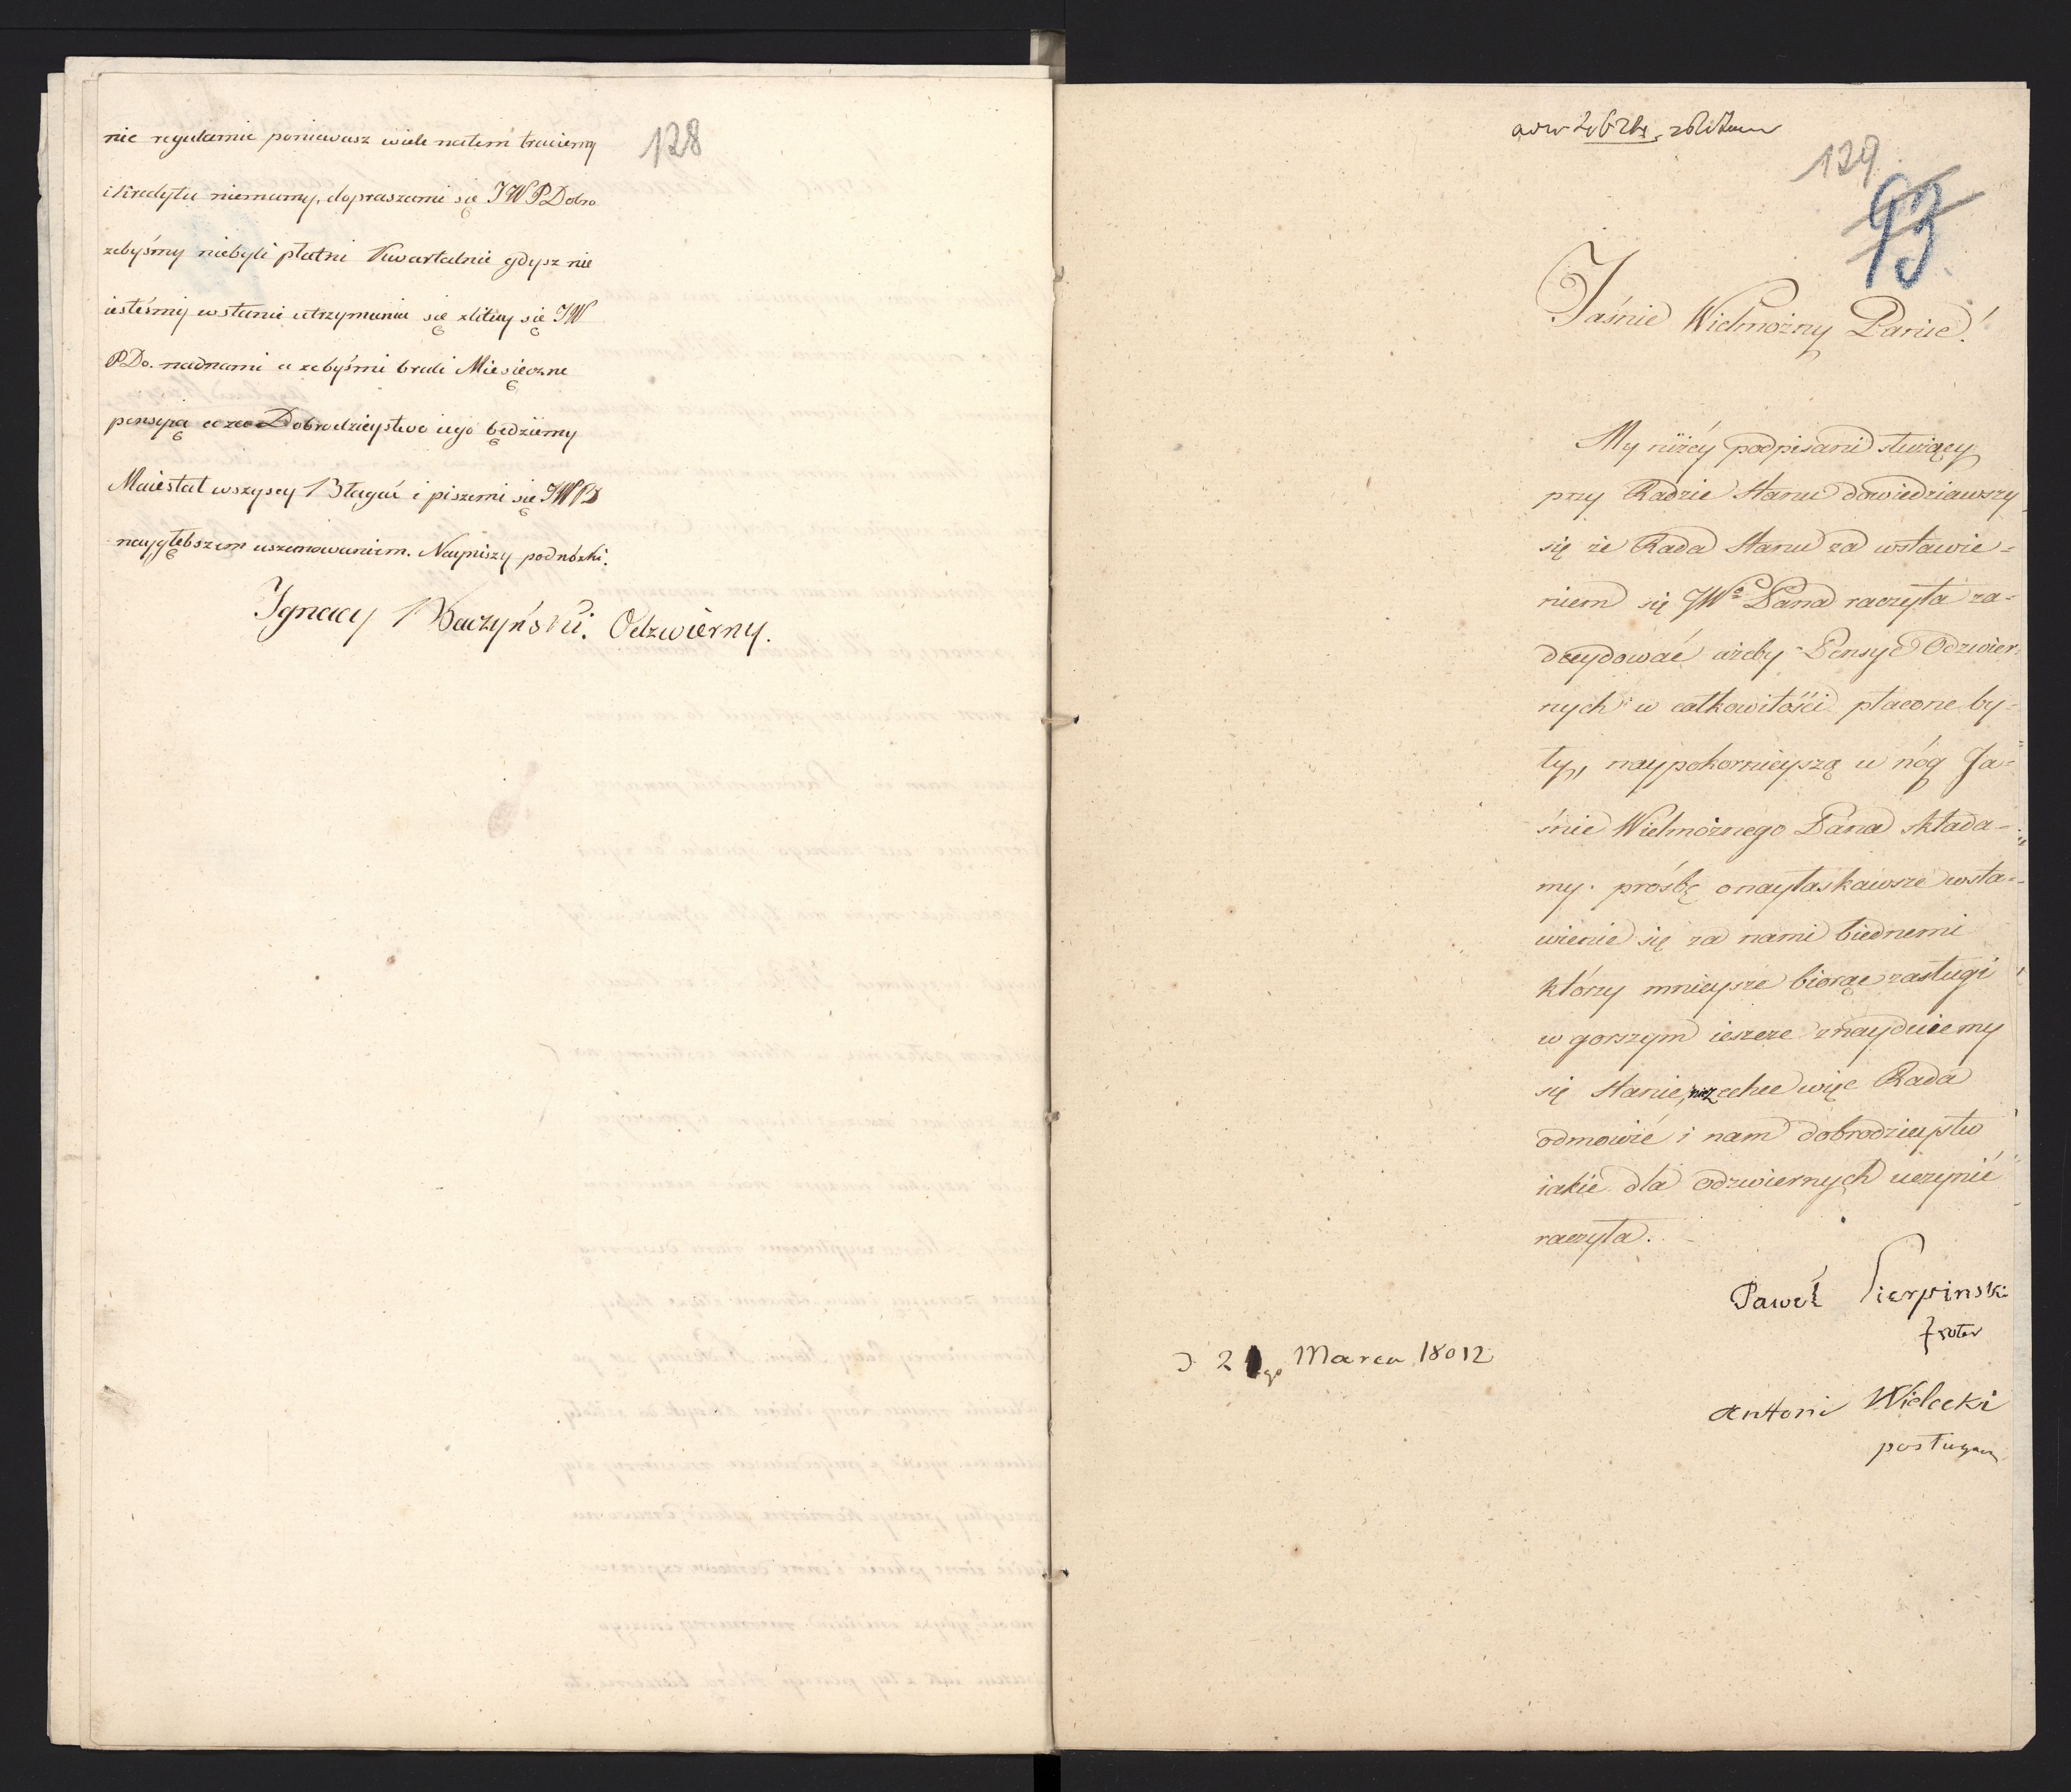 128
nie regularnie poniewasz wiele natem traciemy
i Kredytu niemamy, dopraszami się JWPDobro
zebyśmy niebyli płatni Kwartalnie gdysz nie
iesteśmy wstanie utrzymania się zlituy się JW
PDo. nadnami a zebyśmi brali Miesięczne
pensyią a za Dobrodzieystwo iego będziemy
Maiestat wszyscy Błagać i piszemi się JWPD
naygłębszem uszanowaniem. Nayniszy podnóżki.
Ignacy Baczyński. Odzwierny.
129
93
Jaśnie Wielmożny Panie!
My niżéy podpisani służący
przy Radzie Stanu dowiedziawszy
się że Rada Stanu za wstawie=
niem się JWo Pana raczyła za=
decydować ażeby Pensye Odzwier
nych w całkowitości płacone by=
ły, naypokornieyszą u nóg Ja=
śnie Wielmożnego Pana składa=
my prośbę o nayłaskawsze wsta=
wienie się za nami biednemi
którzy mnieysze biorąc zasługi
w gorszym ieszcze znayduiemy
się stanie, niezechce więc Rada
odmowić i nam dobrodzieystw
iakie dla odzwiernych uczynić
raczyła.
Paweł Sierpinski
froter
D 21go Marca 18012
Antoni Wielecki
posługacz